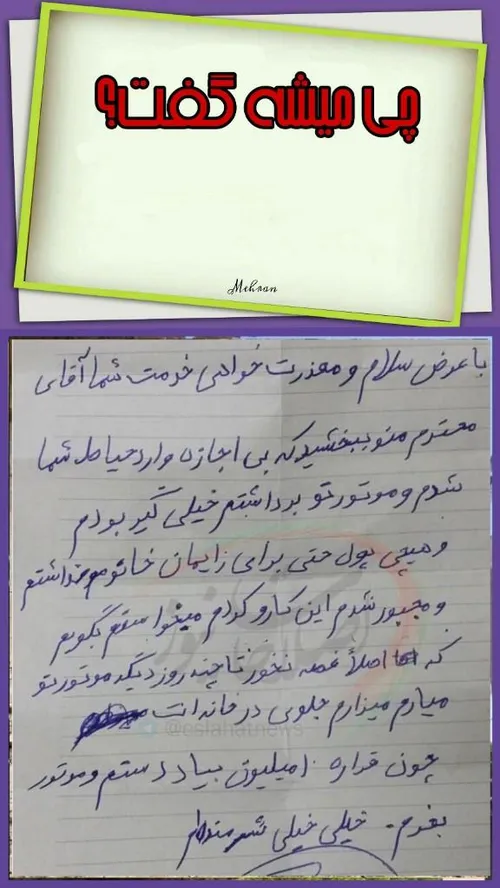 چی میشه گفت؟
Mehran
با عرض سلام و معذرت خواهی خدمت شما آقای
محترم منو ببخشید که بی اجازه وارد حیاط شما
شدم و موتورتو برداشتم خیلی گیر بودم
و هیچی پول حتی برای زایمان خانومم نداشتم
و مجبور شدم این کارو کردم میخواستم بگویم
که اصلاً غصه نخور تا چند روز دیگه موتورتو
میارم میزارم جلوی در خانه ات
@eslahatnews
چون قراره ۱۰ میلیون بیاد دستم و موتور
بخرم. خیلی خیلی شرمنده ام